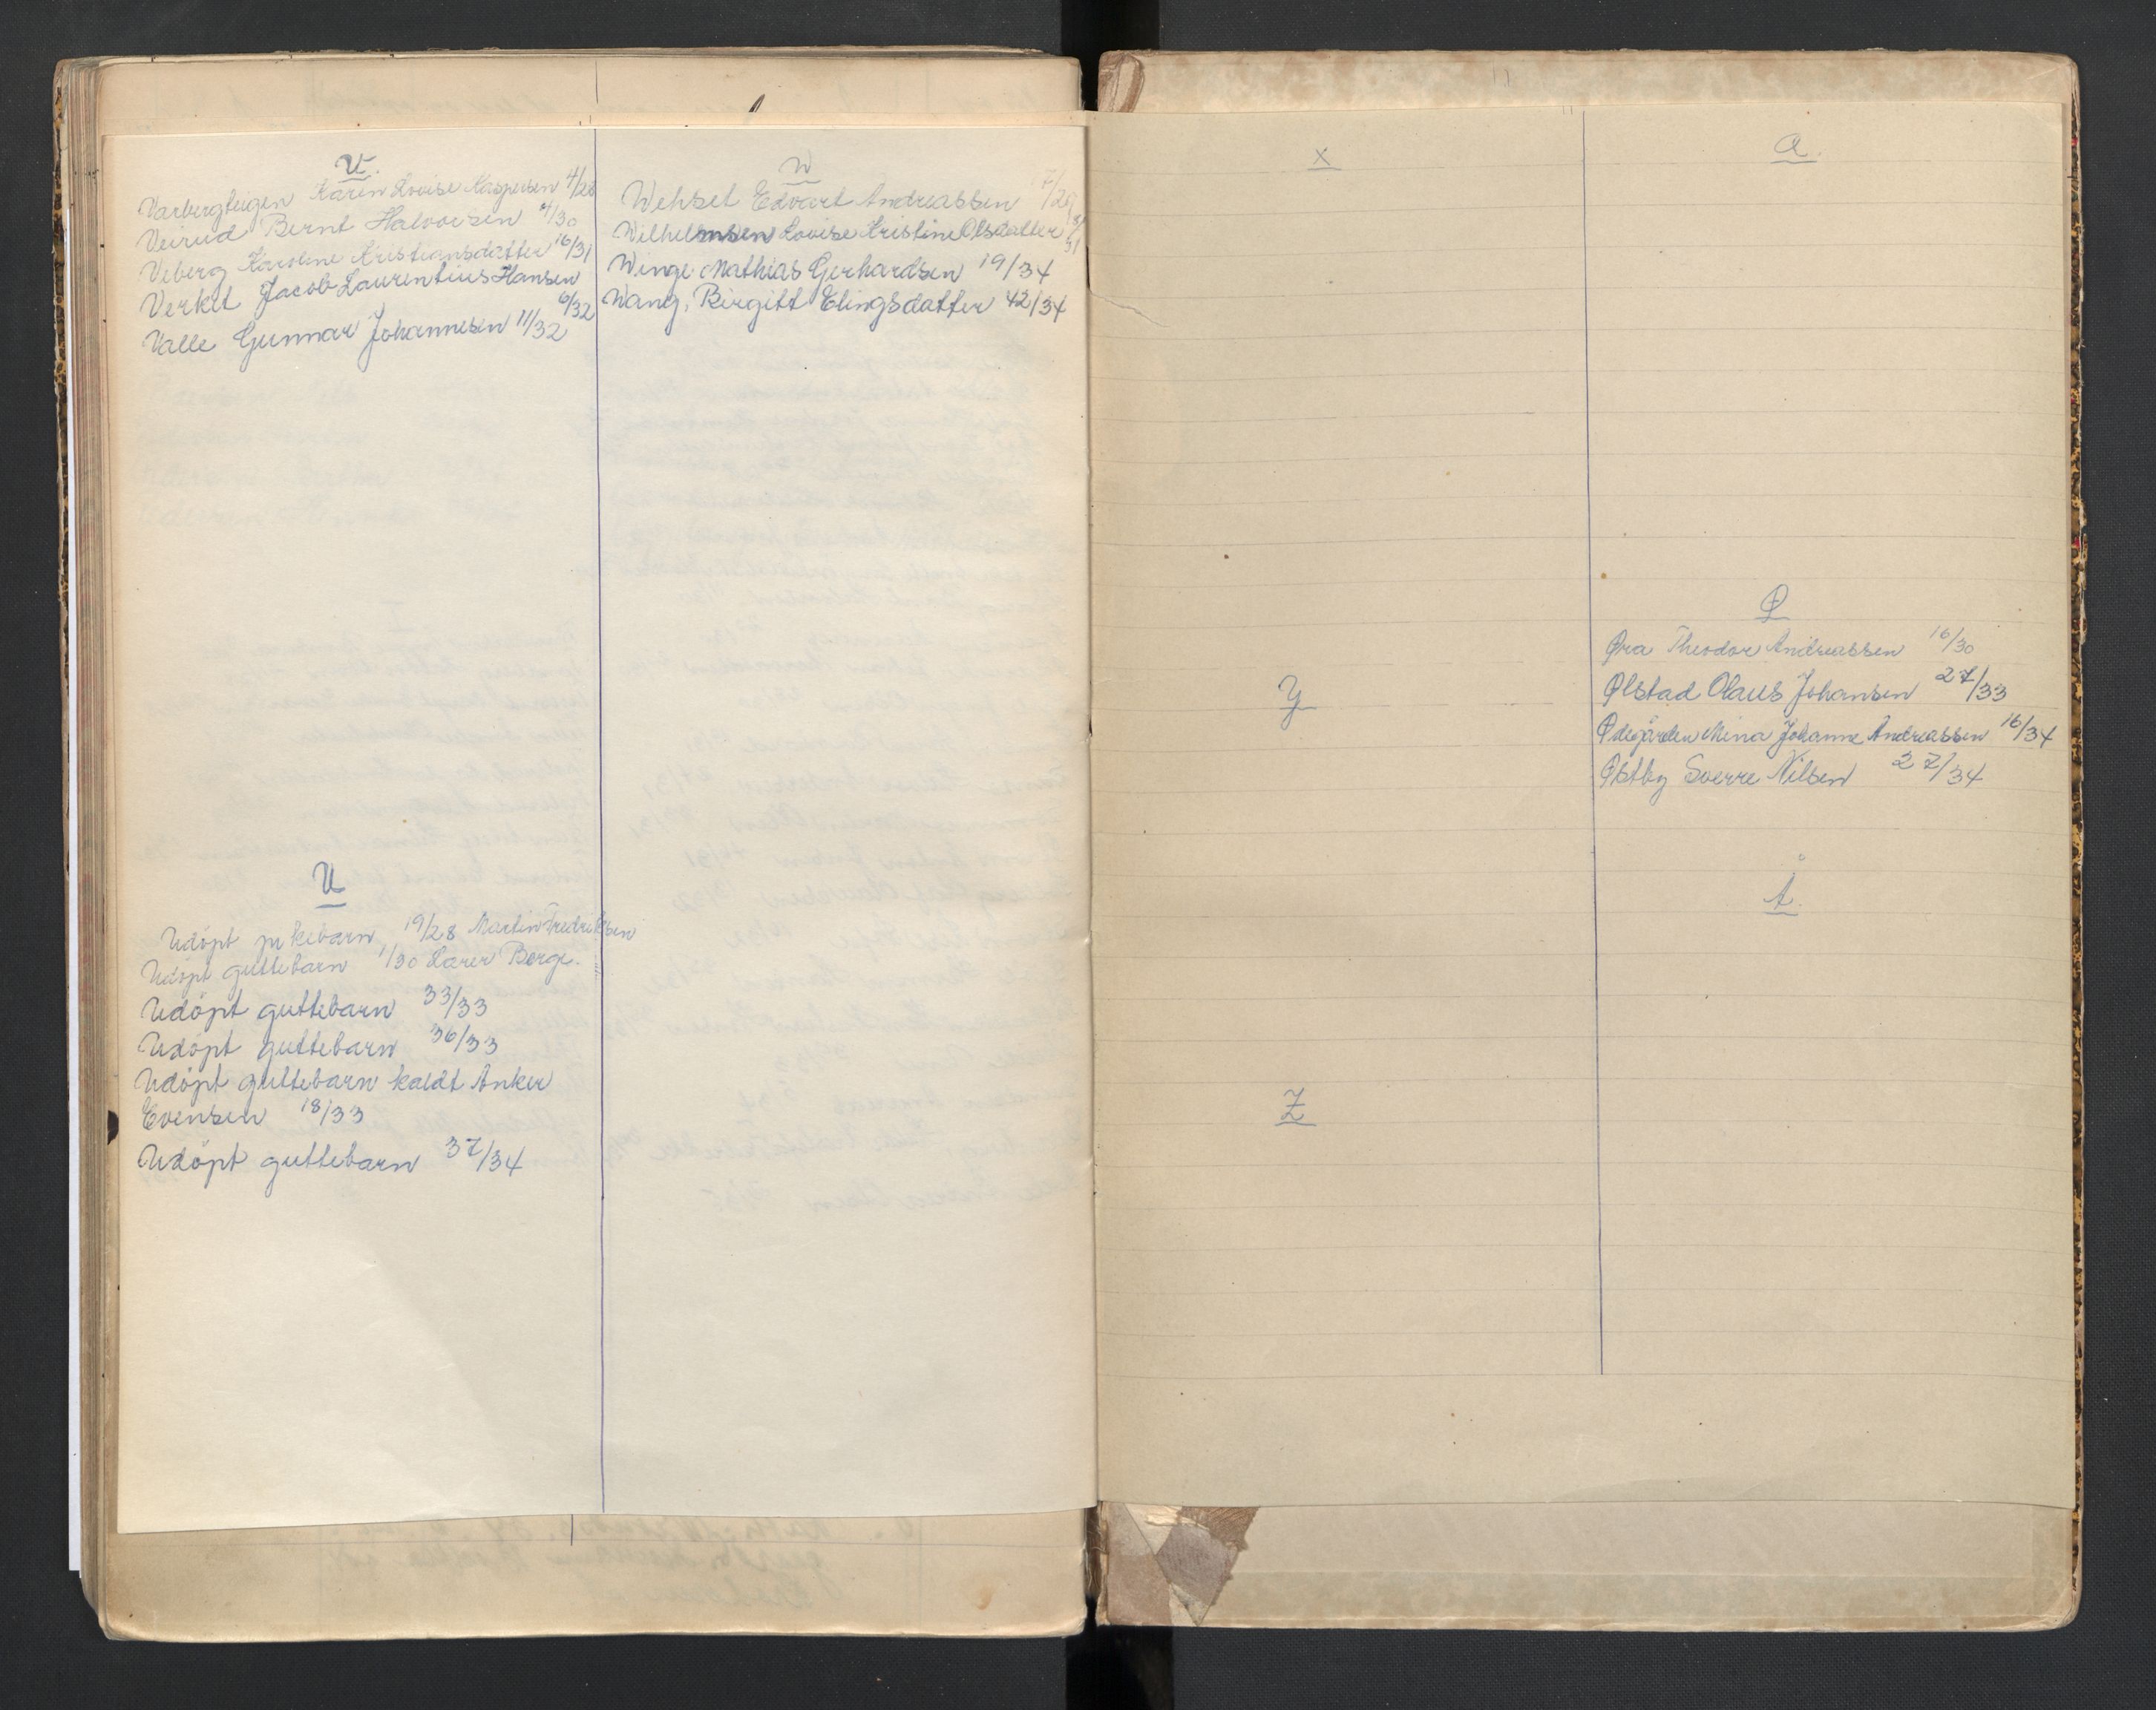 V.
Varbergteigen Karen Lovise Kaspersen 4/28
Veirud Bernt Halvorsen 4/30
Veberg Karoline Kristiansdatter 16/31
Verket Jacob Laurentius Hansen
6/32
Valle Gunnar Johannesen 11/32
U
Udöpt pikebarn 19/28 Martin Fredriksen
Udöpt guttebarn 1/30 Karer Berge.
Udöpt guttebarn 33/33
Udöpt guttebarn 36/33
Udöpt guttebarn kaldt Anker
Evensen 18/33
Udöpt guttebarn 37/34
W
Wehset Edvart Andreassen 7/29
Wilhelmsen Lovise Kristine Olsdatter 8/31
Winge Mathias Gerhardsen 19/34
Wang, Birgitt Elingsdatter 42/34
X
Y
Z
Æ.
Ø
Øra Theodor Andreassen 16/30
Ølstad Olaus Johansen 27/33
Ødegården Mina Johanne Andreassen 16/34
Østby Sverre Nilsen 27/34
Å.